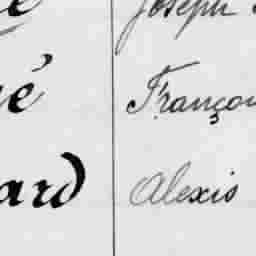 Joseph
é Françou
ard Alexis